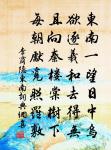 東南一望日中烏
欲逐羲和去得無
且向秦樓棠樹下
每朝先覓照羅敷
李商隱東南詩